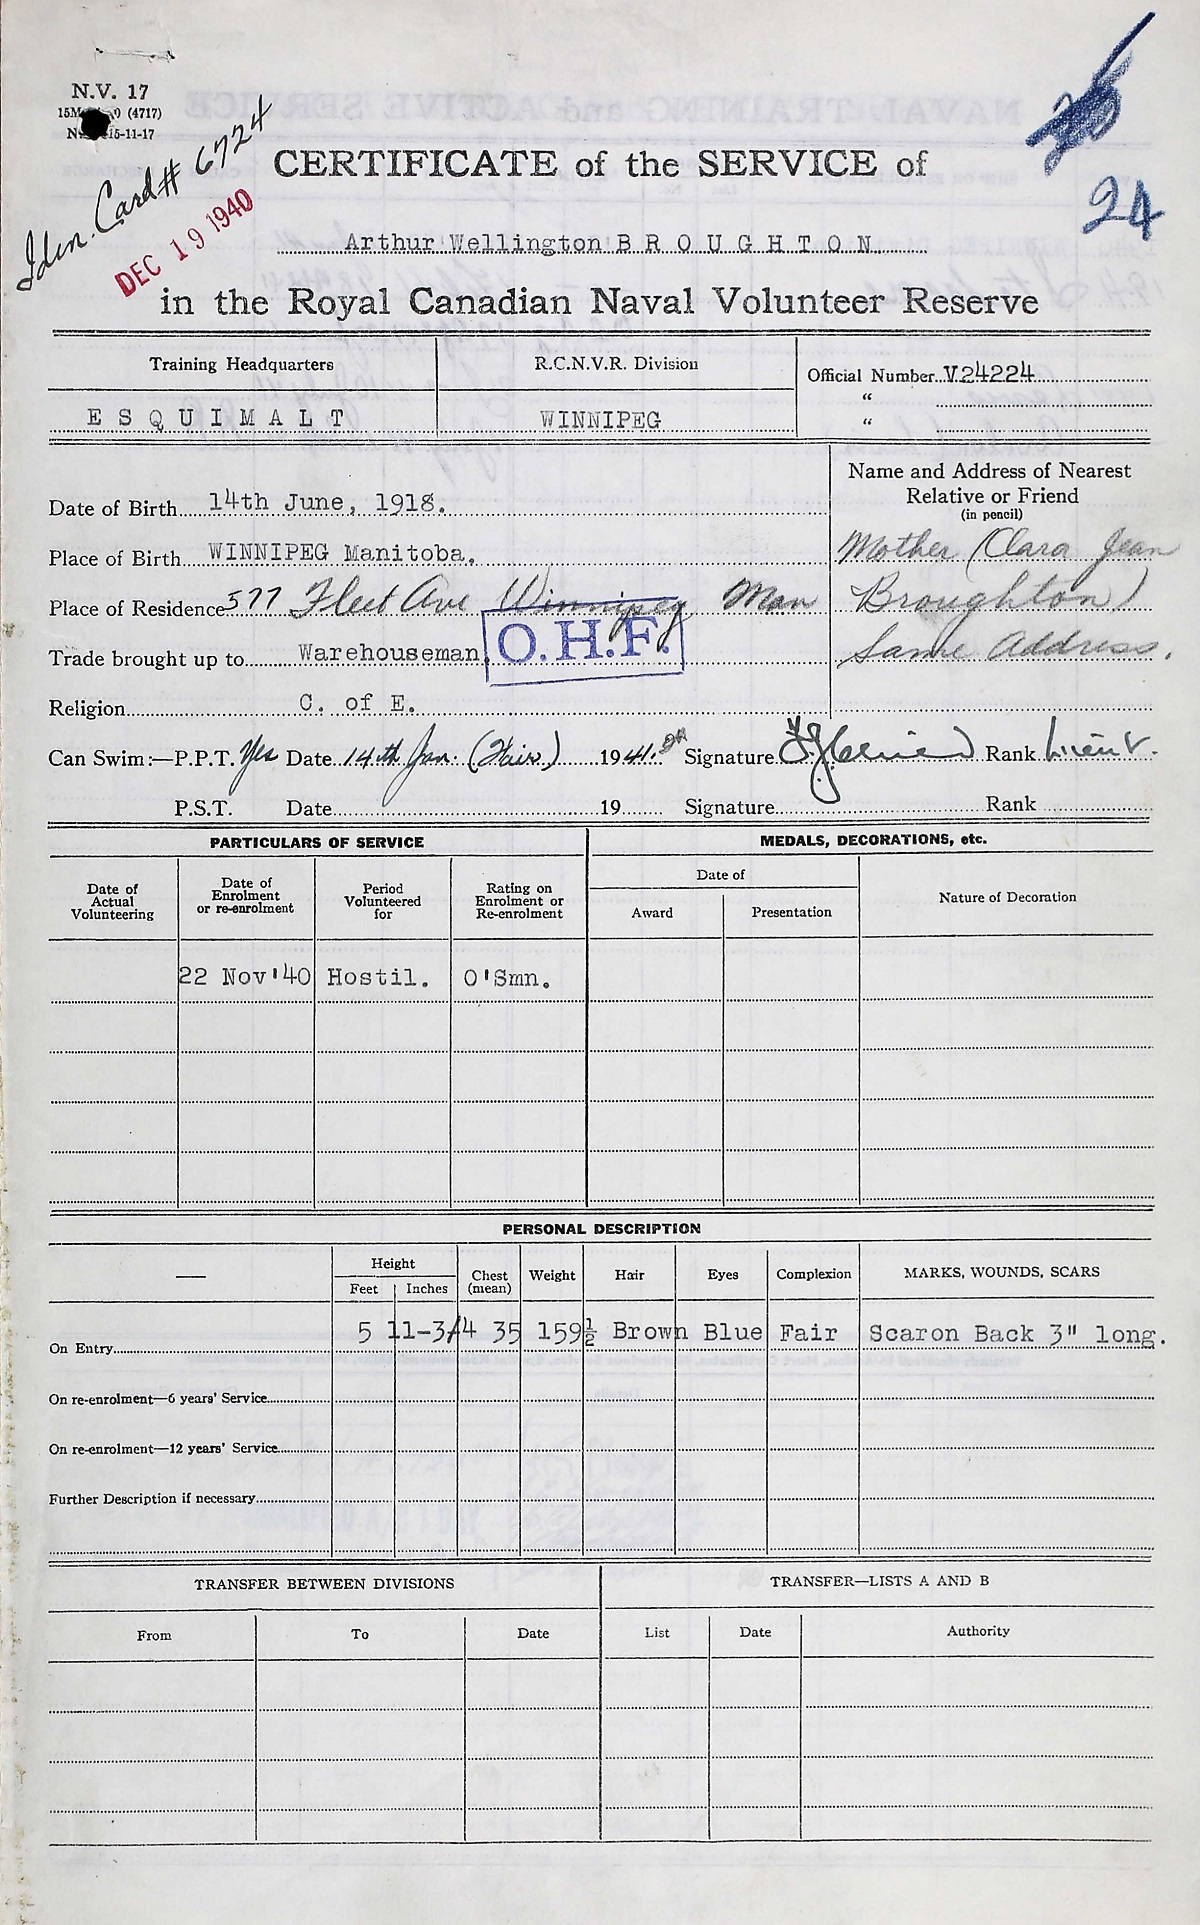 N.V. 17
(4717)
15-11-17
Iden. Card # 6724
DEC 19 1940
24
CERTIFICATE of the SERVICE of
Arthur Wellington B R O U G H T O N
in the Royal Canadian Naval Volunteer Reserve
Training Headquarters
R.C.N.V.R. Division
Official Number V24224
"
"
E S Q U I M A L T
WINNIPEG
Name and Address of Nearest
Relative or Friend
(in pencil)
Mother (Clara Jean
Broughton)
Same Address.
Date of Birth 14th June, 1918.
Place of Birth WINNIPEG Manitoba.
Place of Residence 577 Fleet Ave Winnipeg Man
Trade brought up to Warehouseman.
O.H.F.
Religion C. of E.
Can Swim:—P.P.T. Yes Date 14th Jan. (Fair.) 1941. Signature Rank Lieut.
P.S.T. Date 19 Signature Rank
PARTICULARS OF SERVICE
MEDALS, DECORATIONS, etc.
Date of
Actual
Volunteering
Date of
Enrolment
or re-enrolment
Period
Volunteered
for
Rating on
Enrolment or
Re-enrolment
Date of
Award
Presentation
Nature of Decoration
22 Nov'40 Hostil. O'Smn.
PERSONAL DESCRIPTION
—
Height
Feet
Inches
Chest
(mean)
Weight
Hair
Eyes
Complexion
MARKS, WOUNDS, SCARS
On Entry 5 11-3/4 35 159½ Brown Blue Fair Scaron Back 3" long.
On re-enrolment—6 years' Service
On re-enrolment—12 years' Service
Further Description if necessary
TRANSFER BETWEEN DIVISIONS
TRANSFER—LISTS A AND B
From
To
Date
List
Date
Authority